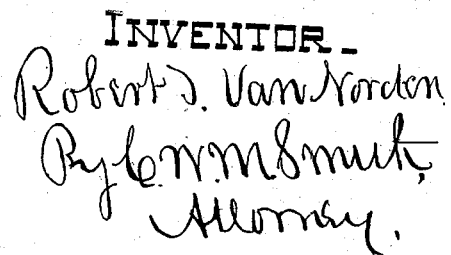 INVENTOR_
Robert J. Van Norden
By C. W. M. Smith,
Attorney.